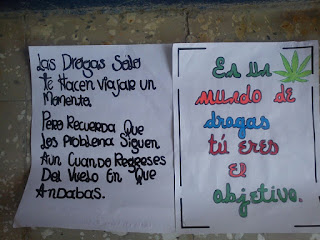 Las Drogas Sólo
Te Hacen Viajar Un
Momento.
Pero Recuerda Que
Los Problema Siguen
Aun Cuando Regreses
Del Vuelo En Que
Andabas.
En un
mundo de
drogas
tú eres
el
objetivo.